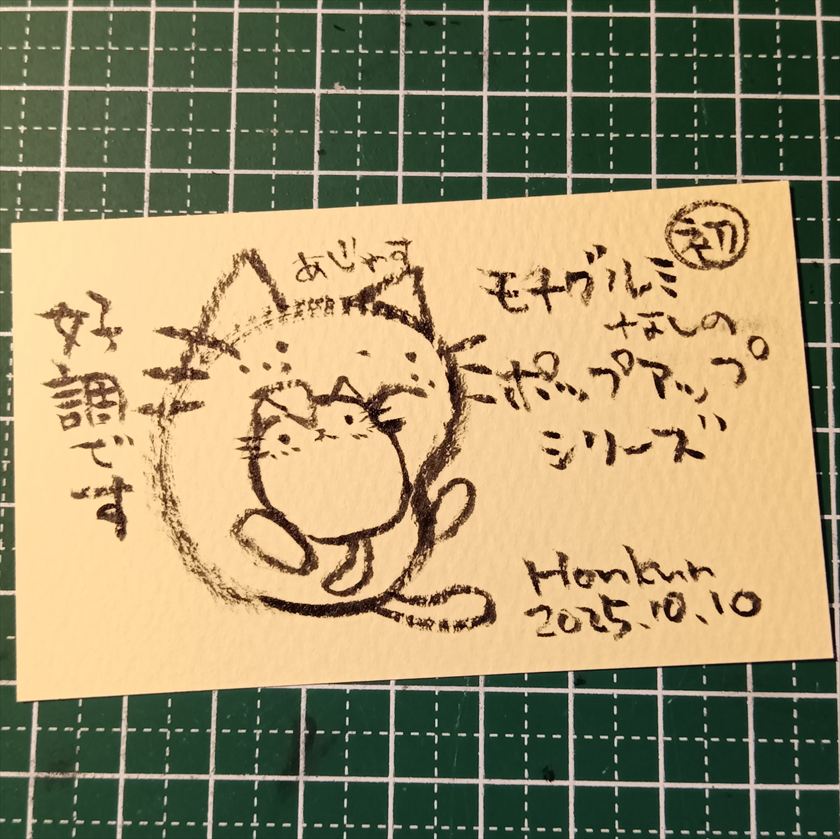 好調です
あじゃす
初
モチグルミ
なしの
ポップアップ
シリーズ
Honkun
2025.10.10